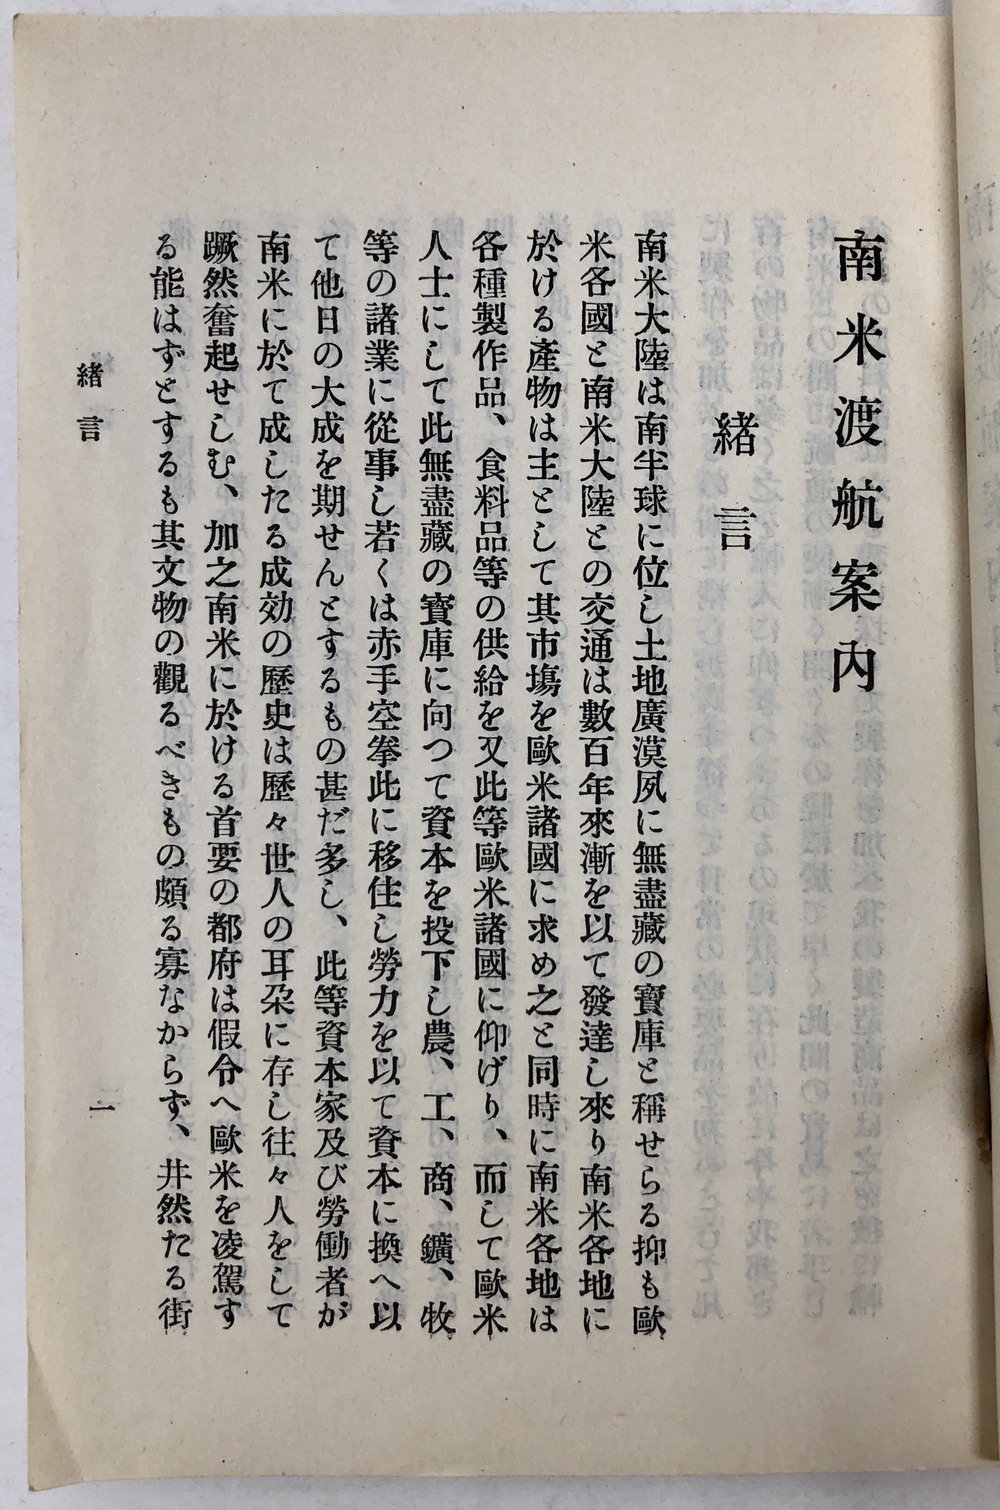 南米渡航案内
緒言
南米大陸は南半球に位し土地廣漠夙に無盡藏の寶庫と稱せらる抑も歐
米各國と南米大陸との交通は數百年來漸を以て發達し來り南米各地に
於ける產物は主として其市塲を歐米諸國に求め之と同時に南米各地は
各種製作品、食料品等の供給を又此等歐米諸國に仰げり、而して歐米
人士にして此無盡藏の寶庫に向つて資本を投下し農、工、商、鑛、牧
等の諸業に從事し若くは赤手空拳此に移住し勞力を以て資本に換へ以
て他日の大成を期せんとするもの甚だ多し、此等資本家及び勞働者が
南米に於て成したる成効の歷史は歷々世人の耳朶に存し往々人をして
蹶然奮起せしむ、加之南米に於ける首要の都府は假令へ歐米を凌駕す
る能はずとするも其文物の觀るべきもの頗る寡なからず、井然たる街
緒言
一